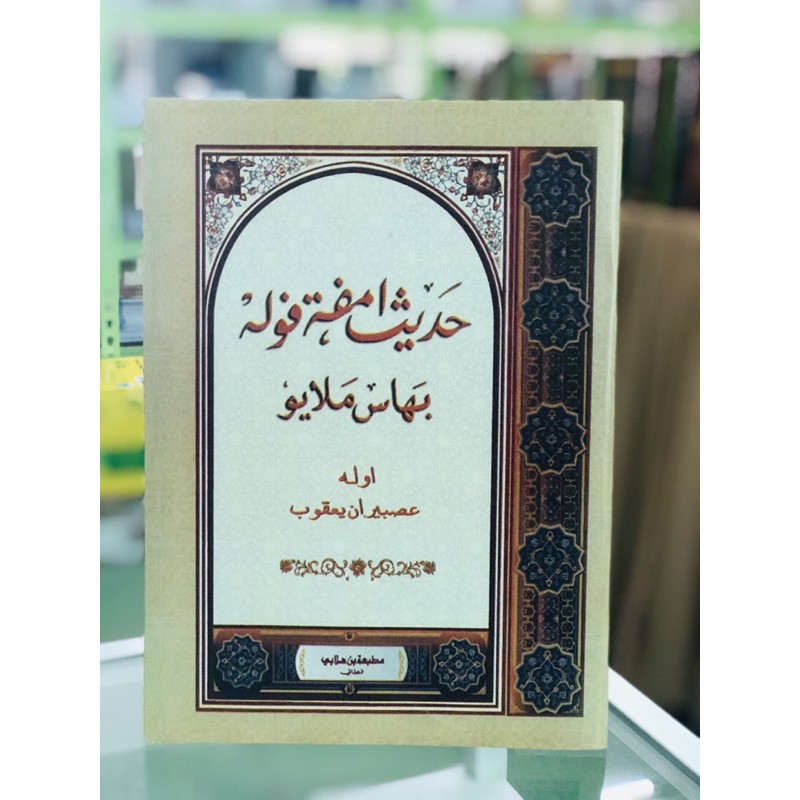 حديث امفة فوله
بهاس ملايو
اوله
عصبيران يعقوب
مطبعة بن هلابي
فطاني